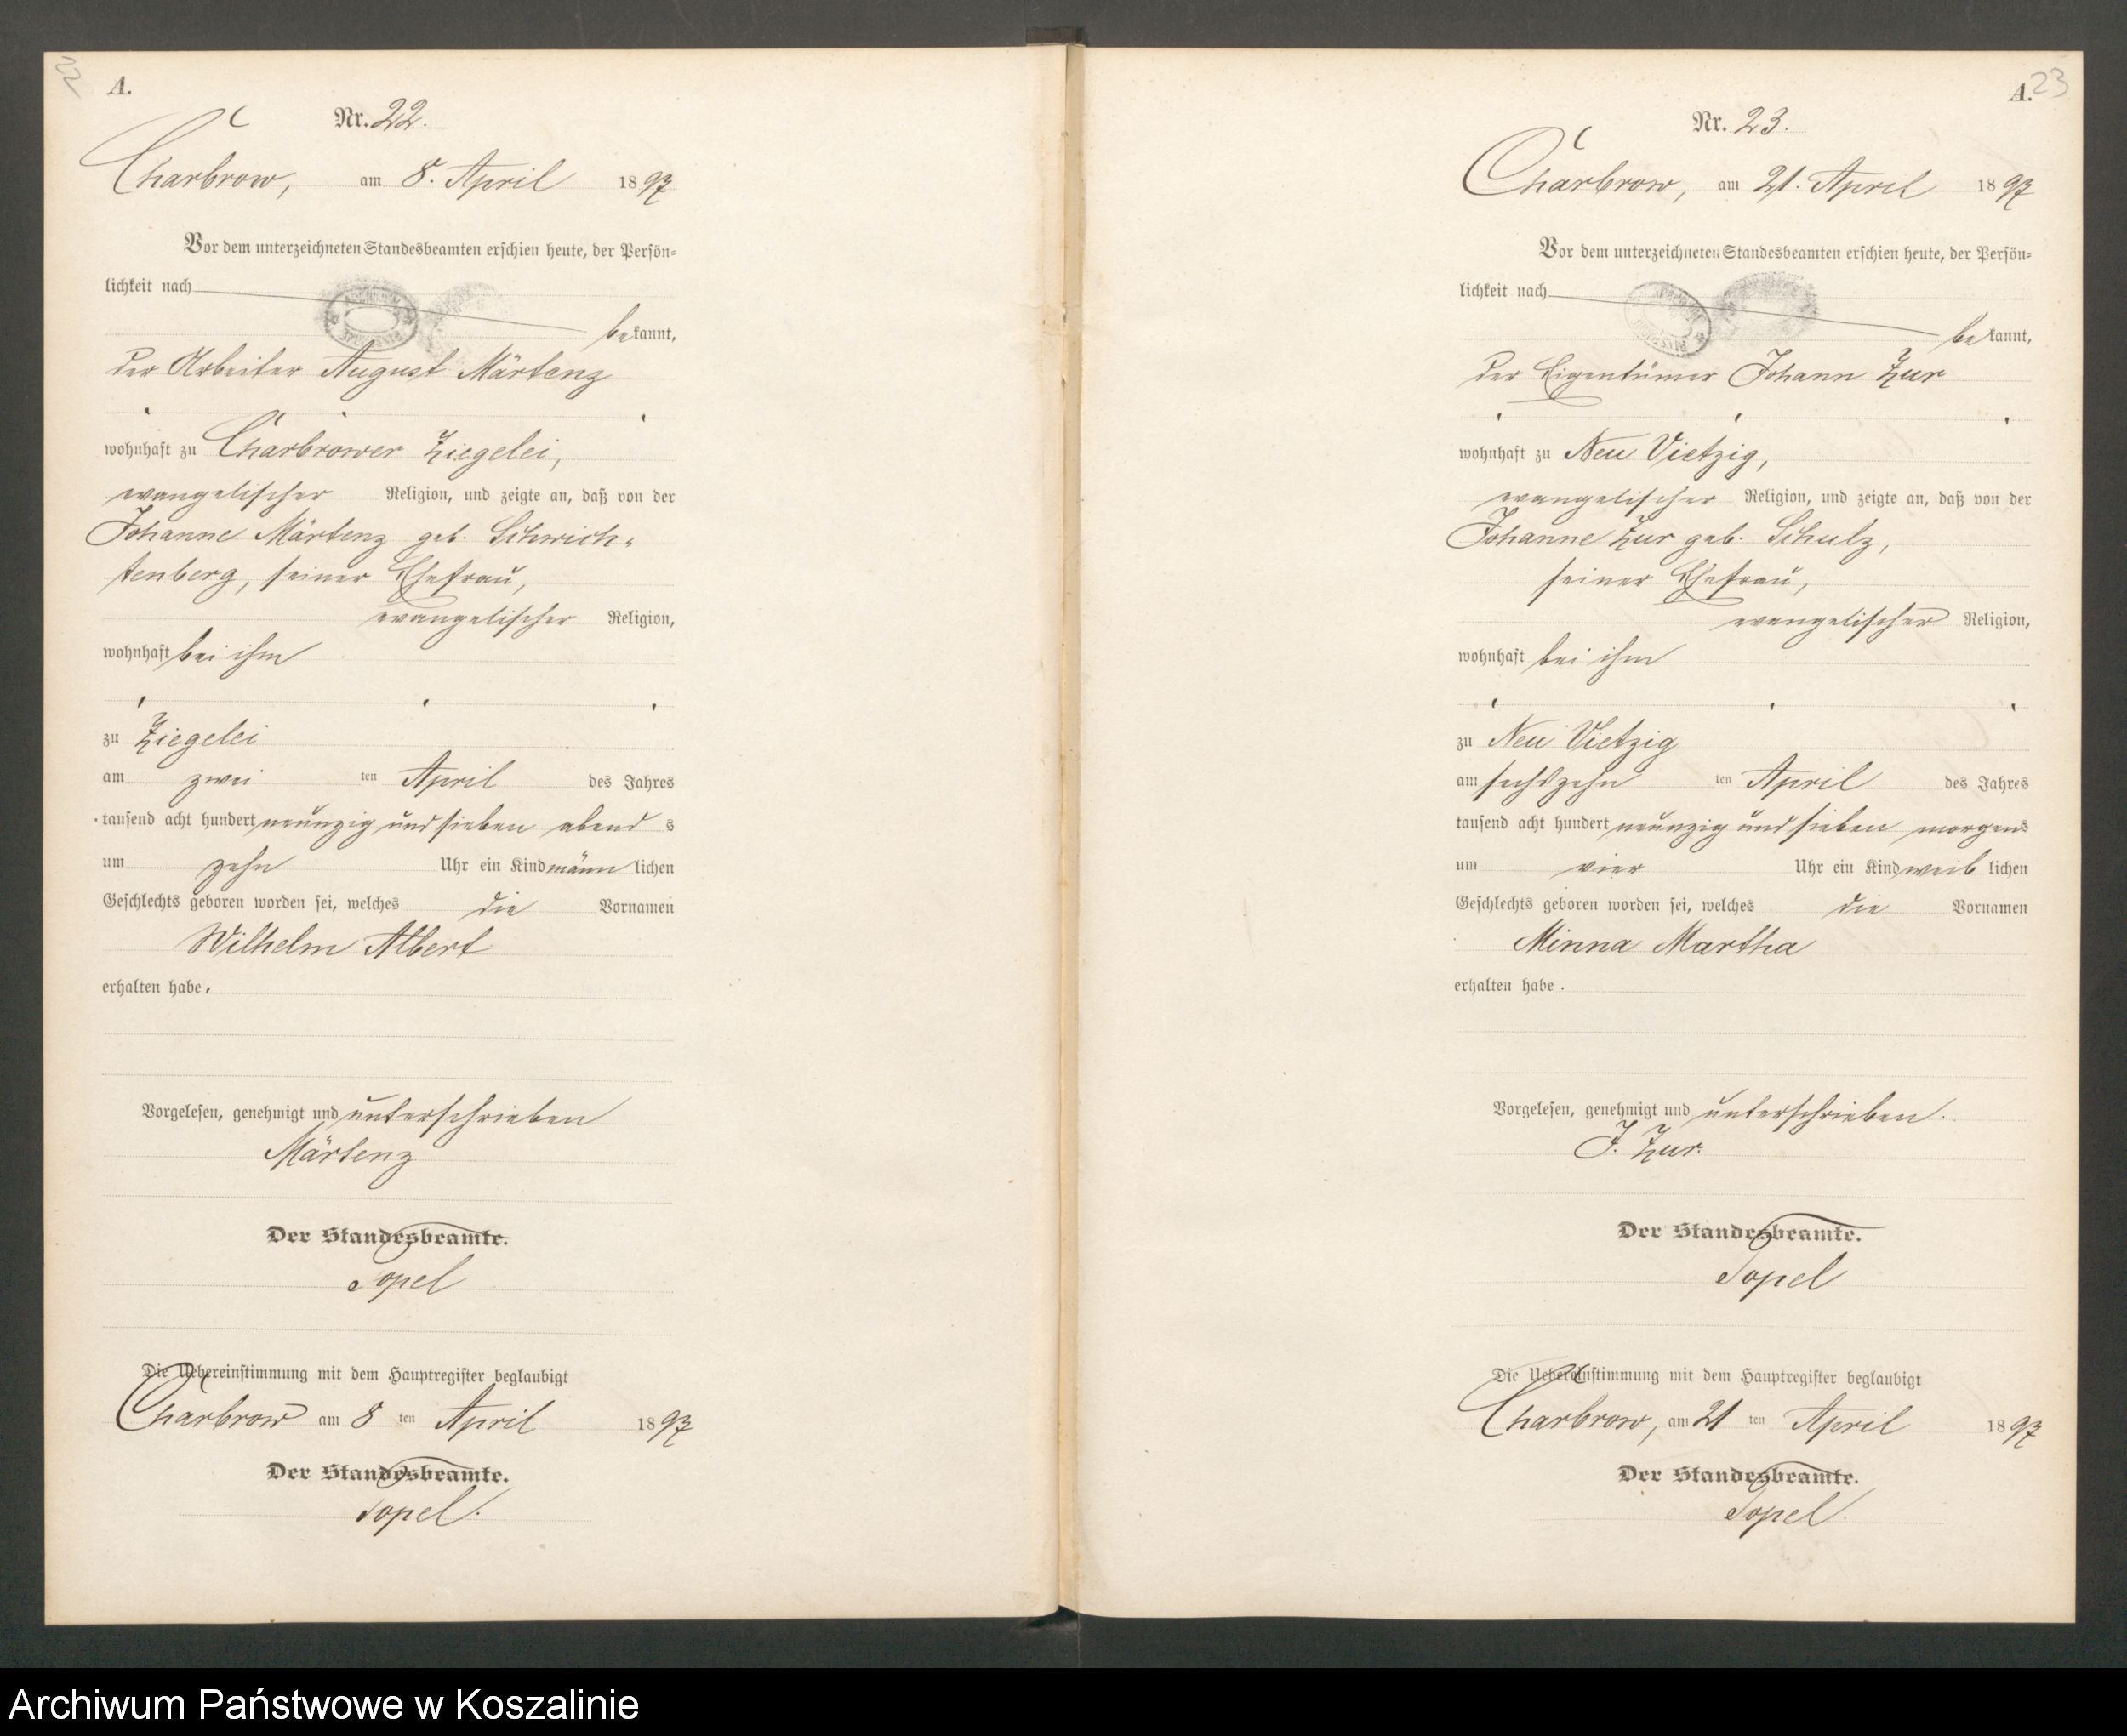 22
A.
Nr. 22.
Charbrow, am 8. April 1897
Vor dem unterzeichneten Standesbeamten erschien heute, der Persön-
lichkeit nach
bekannt,
der Arbeiter August Märtenz
wohnhaft zu Charbrower Ziegelei,
evangelischer Religion, und zeigte an, daß von der
Johanne Märtenz geb. Schwich-
tenberg, seiner Ehefrau,
evangelischer Religion,
wohnhaft bei ihm
zu Ziegelei
am zwei ten April des Jahres
tausend acht hundert neunzig und sieben abend s
um zehn Uhr ein Kind männlichen
Geschlechts geboren worden sei, welches die Vornamen
Wilhelm Albert
erhalten habe.
Vorgelesen, genehmigt und unterschrieben
Märtenz
Der Standesbeamte.
Topel
Die Uebereinstimmung mit dem Hauptregister beglaubigt
Charbrow am 8 ten April 1897
Der Standesbeamte.
Topel.
A. 23
Nr. 23.
Charbrow, am 21. April 1897
Vor dem unterzeichneten Standesbeamten erschien heute, der Persön-
lichkeit nach
bekannt,
der Eigentümer Johann Zur
wohnhaft zu Neu Vietzig,
evangelischer Religion, und zeigte an, daß von der
Johanne Zur geb. Schulz,
seiner Ehefrau,
evangelischer Religion,
wohnhaft bei ihm
zu Neu Vietzig
am sechszehn ten April des Jahres
tausend acht hundert neunzig und sieben morgens
um vier Uhr ein Kind weiblichen
Geschlechts geboren worden sei, welches die Vornamen
Minna Martha
erhalten habe.
Vorgelesen, genehmigt und unterschrieben.
J. Zur.
Der Standesbeamte.
Topel
Die Uebereinstimmung mit dem Hauptregister beglaubigt
Charbrow, am 21 ten April 1897
Der Standesbeamte.
Topel.
Archiwum Państwowe w Koszalinie